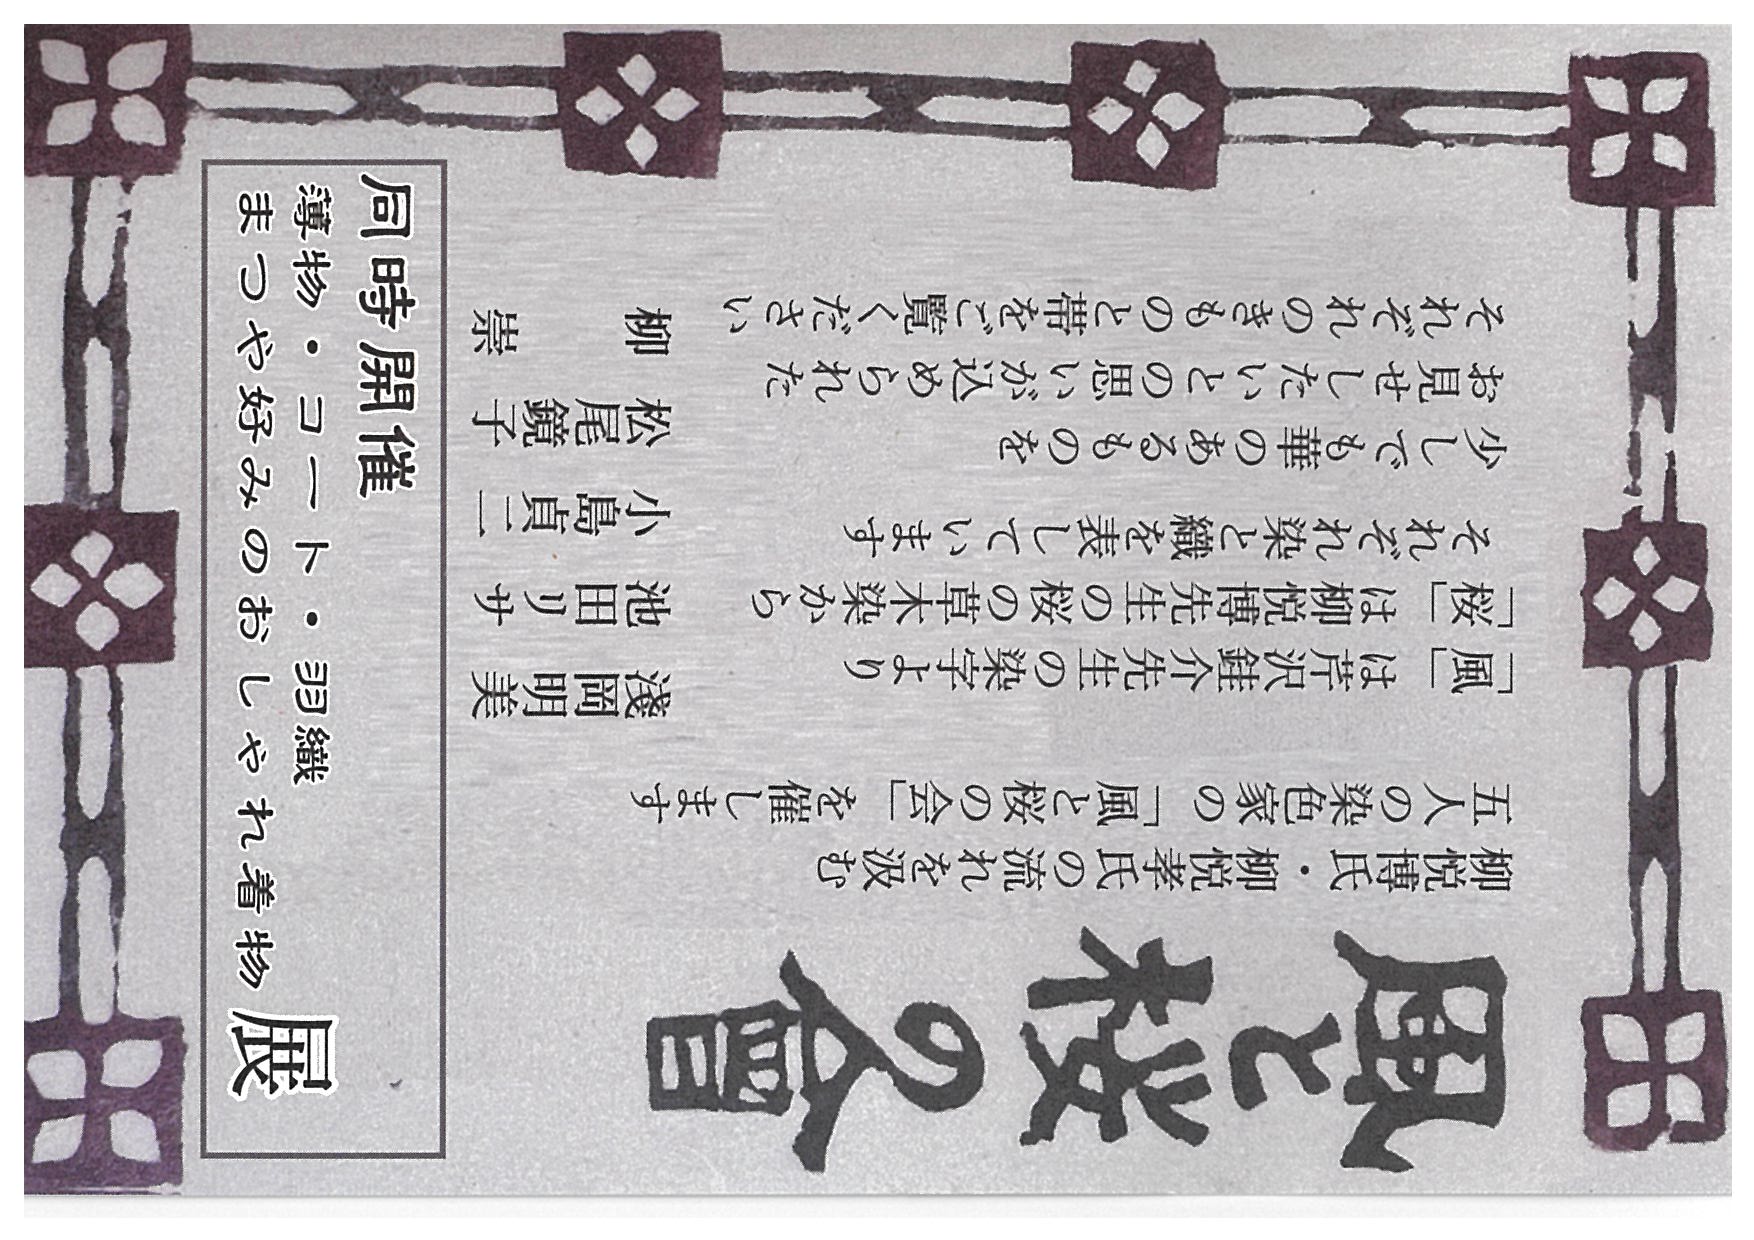 風と桜の會
柳悦博氏・柳悦孝氏の流れを汲む
五人の染色家の「風と桜の会」を催します
「風」は芹沢銈介先生の染字より
「桜」は柳悦博先生の桜の草木染から
それぞれ染と織を表しています
少しでも華のあるものを
お見せしたいとの思いが込められた
それぞれのきものと帯をご覧ください
淺岡明美
池田リサ
小島貞二
松尾鏡子
柳 崇
同時開催
薄物・コート・羽織
まつや好みのおしゃれ着物 展